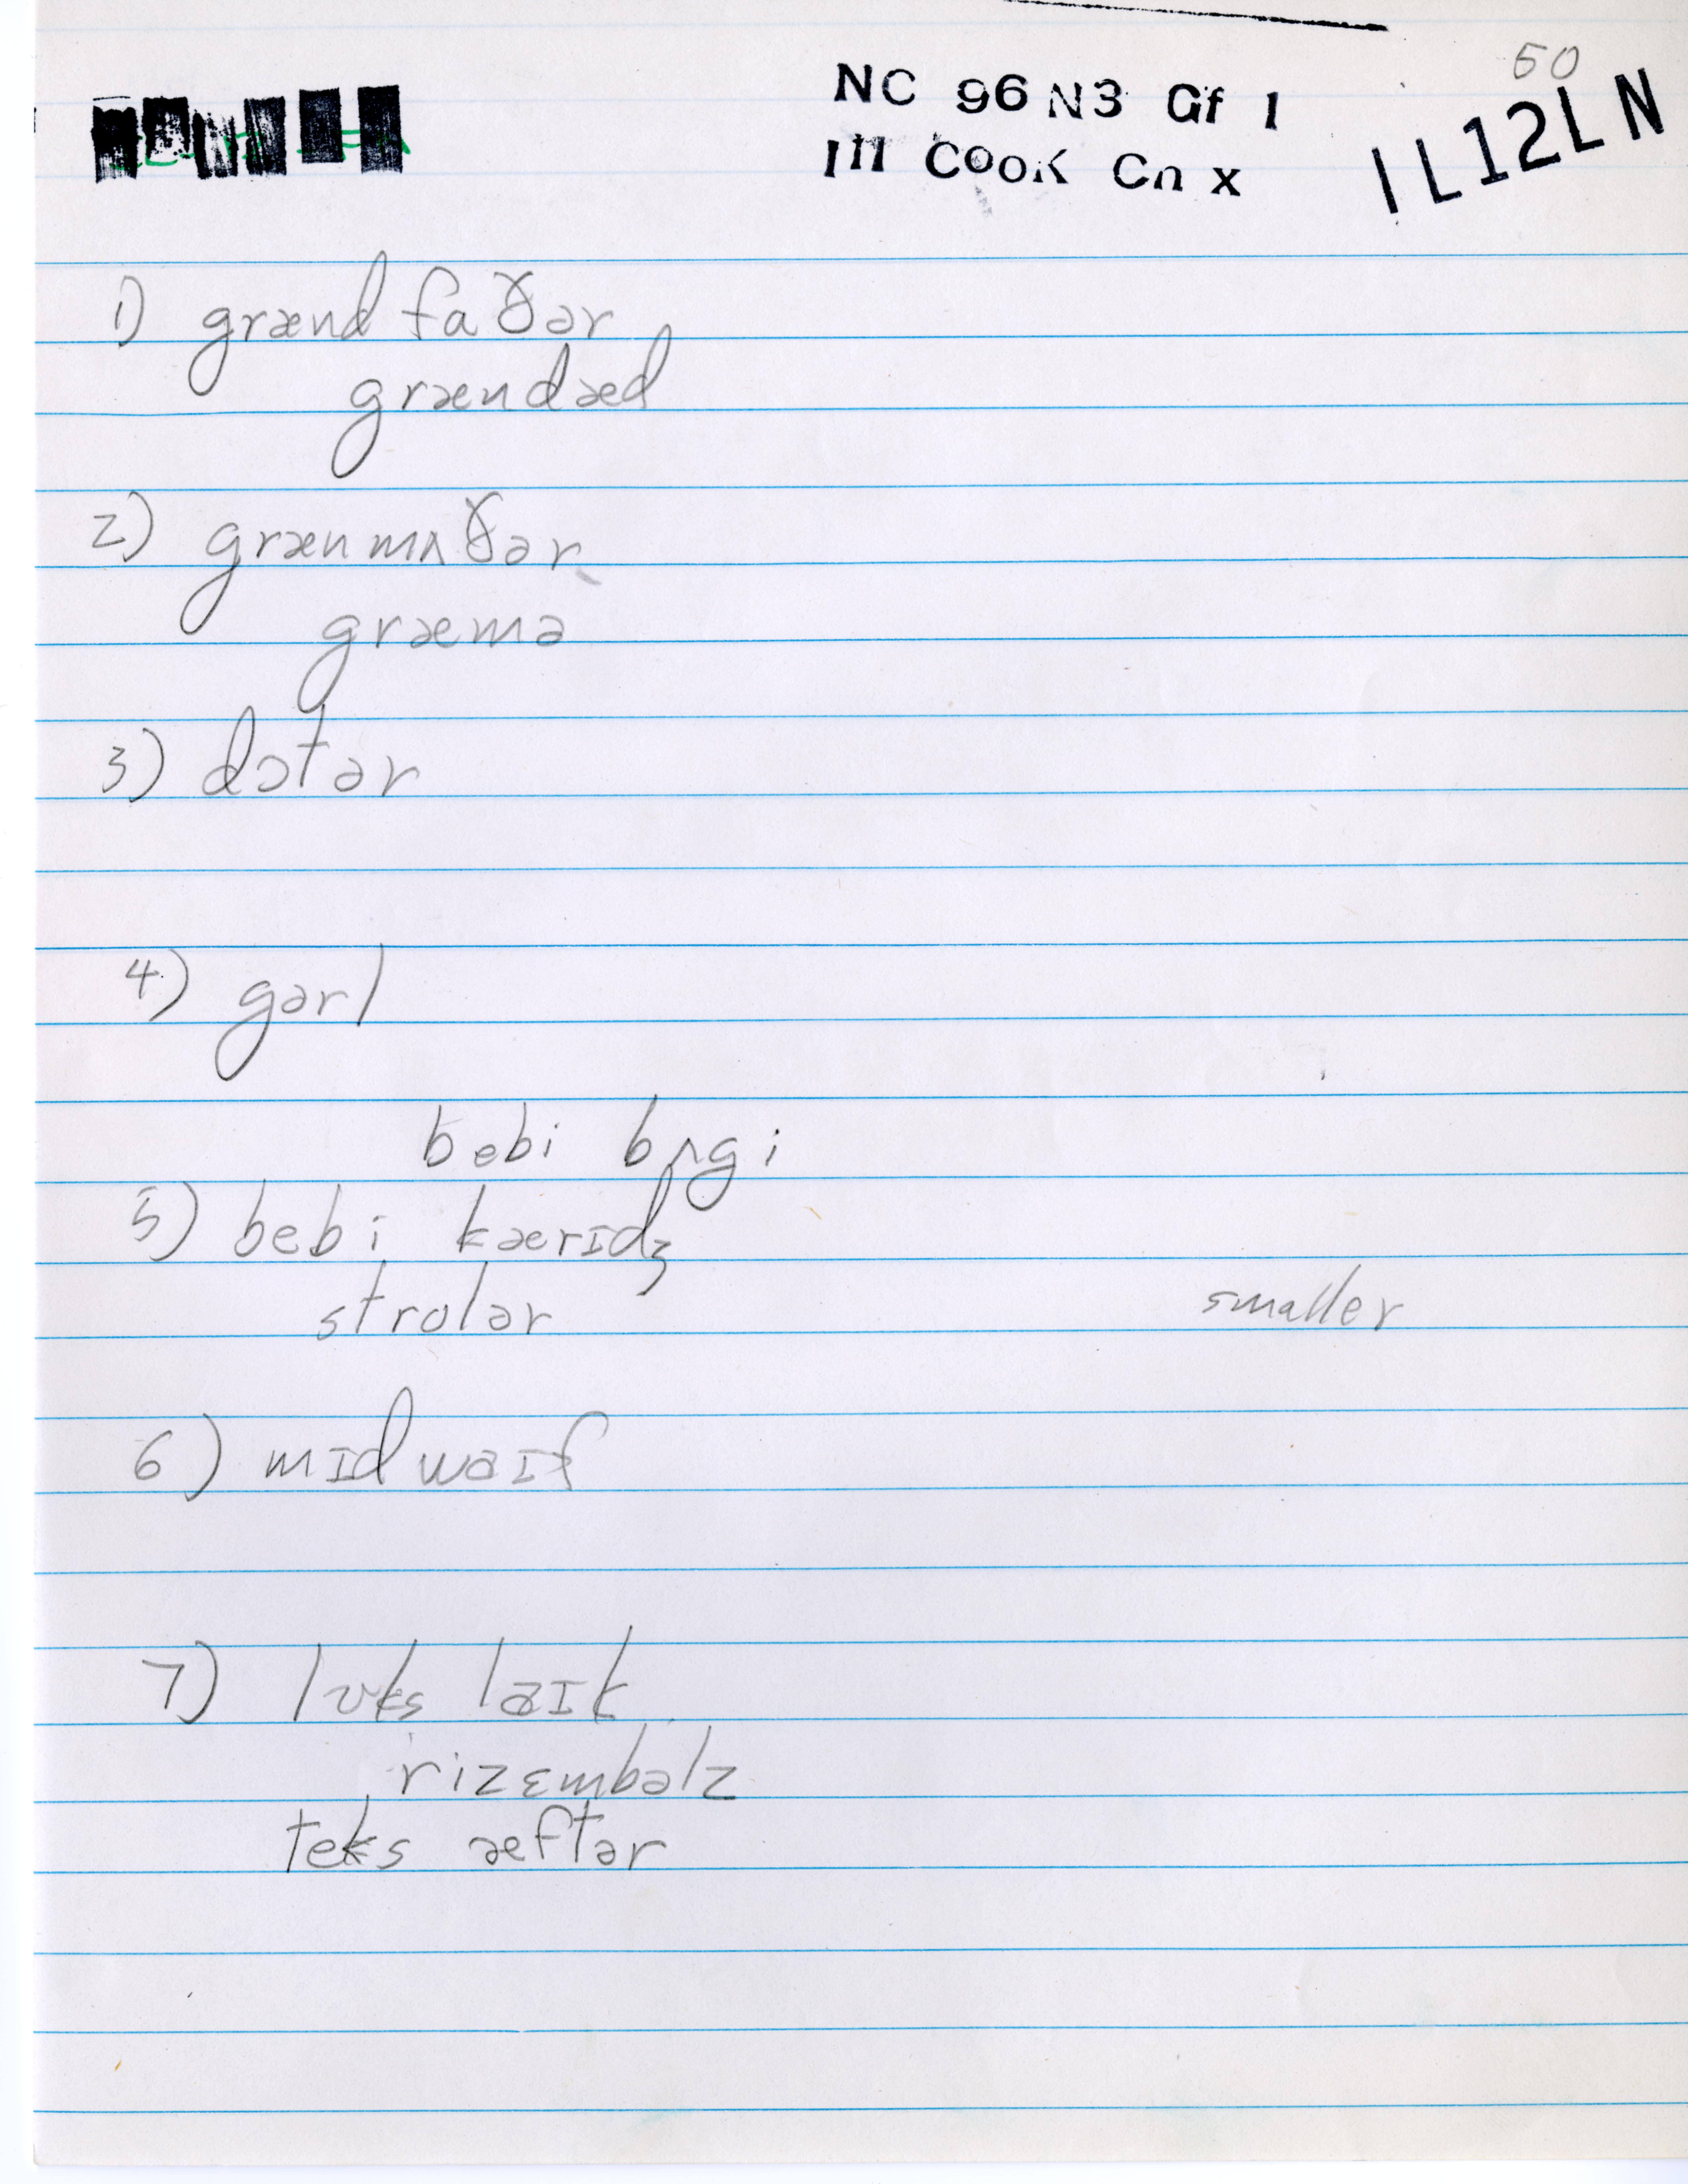 50
NC 96 N3 Gf 1
Ill Cook Cn x
IL12LN
1) grænd faðər
grændæd
2) grænmʌðər
græmə
3) dɔtər
4) gərl
bebi bʌgi
5) bebi kærɪdʒ
strolər smaller
6) mɪdwaɪf
7) lʊks laɪk
rizɛmbəlz
teks æftər